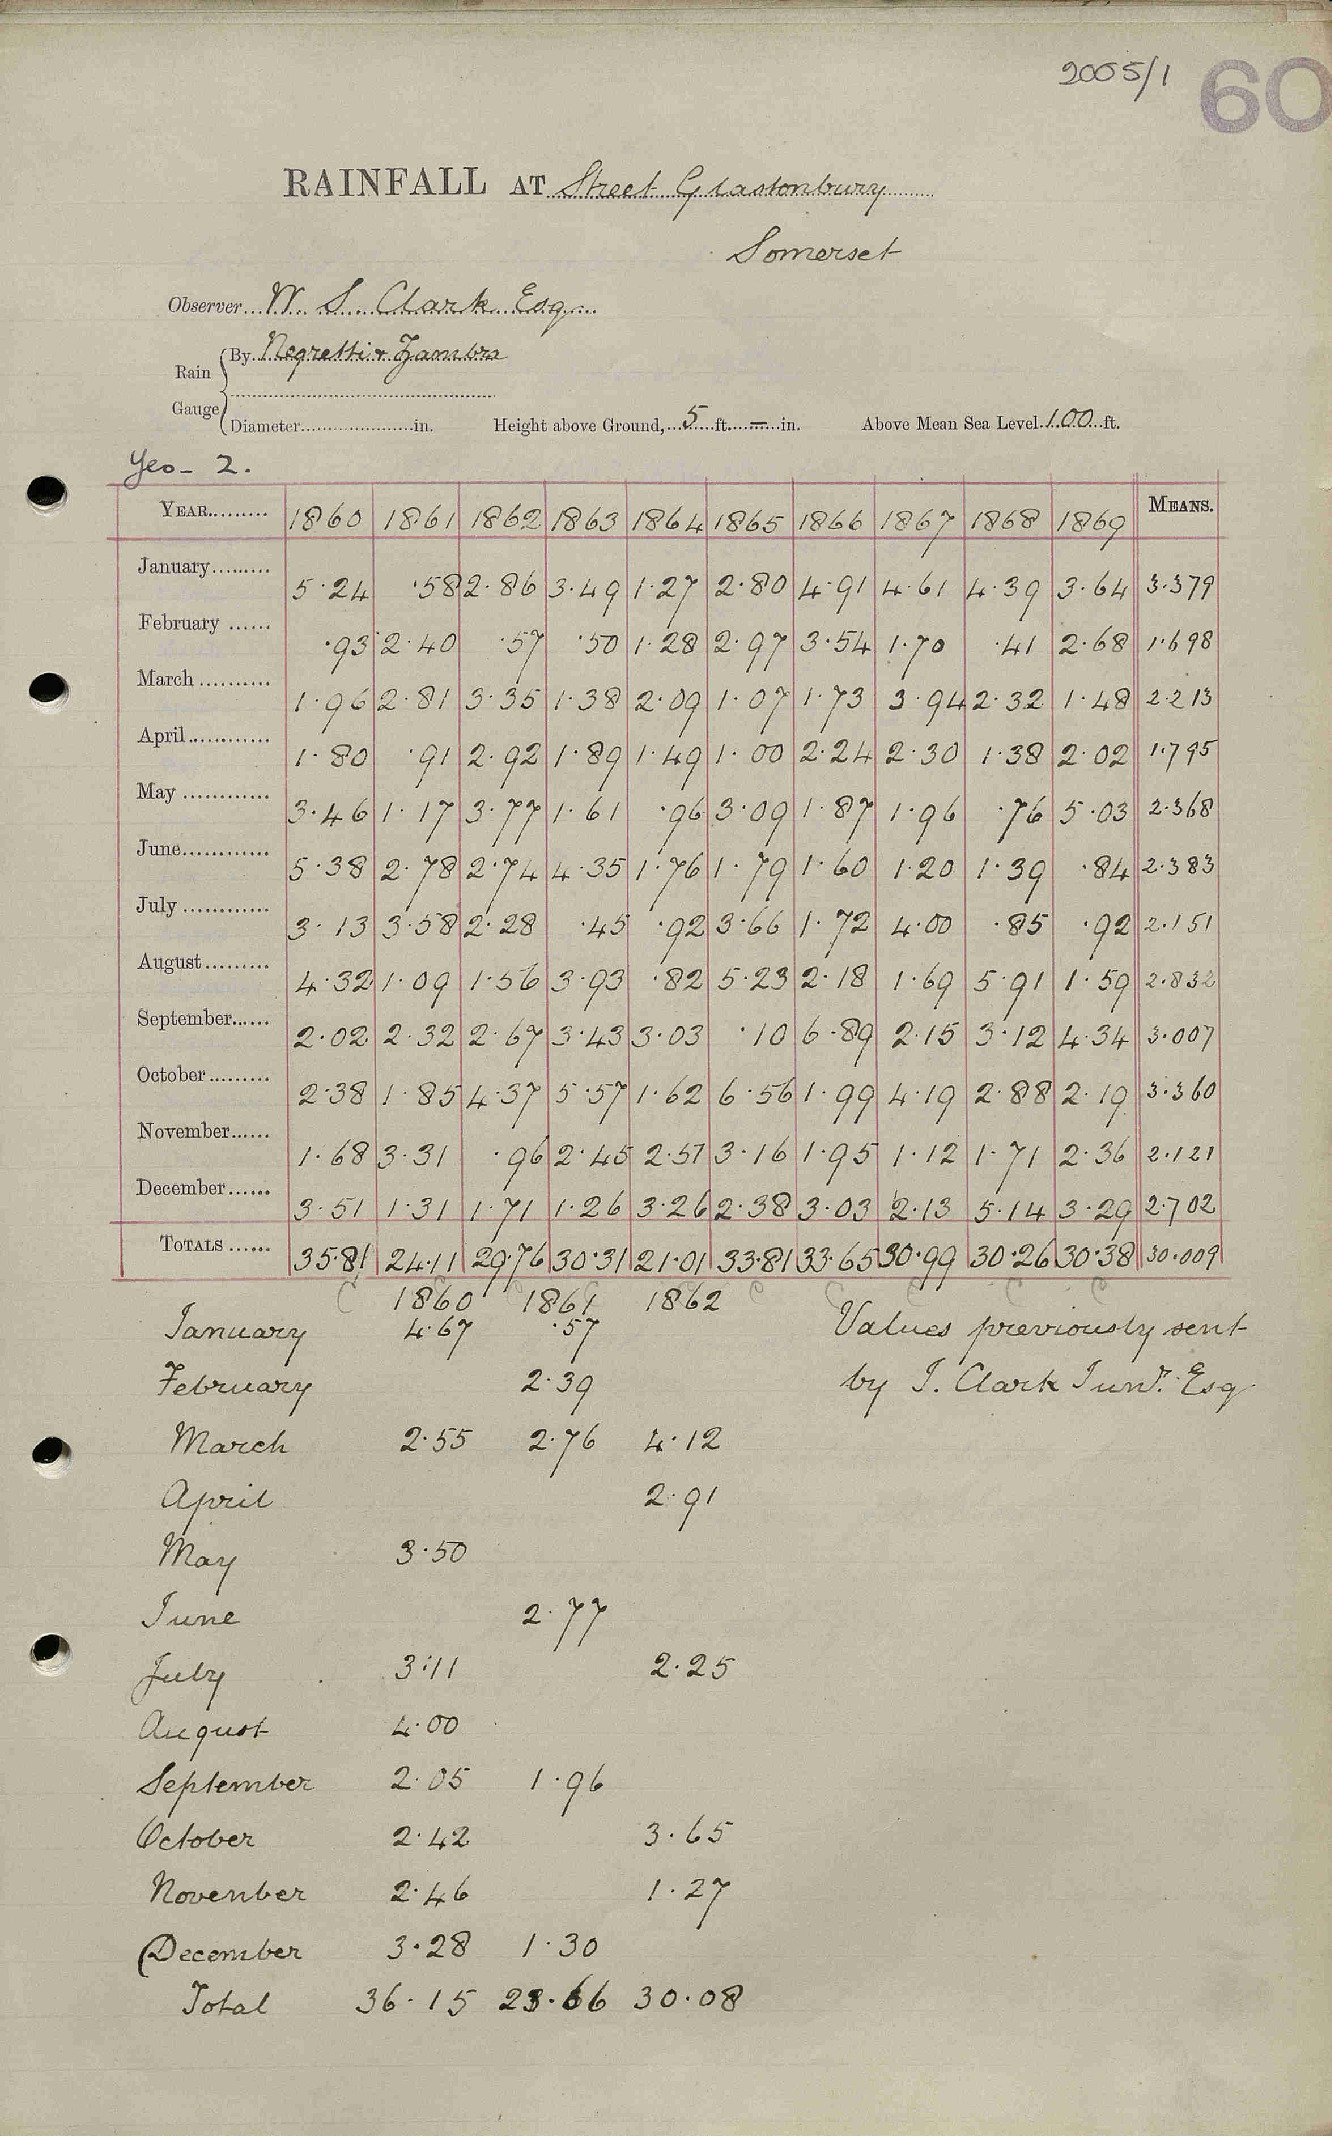 2005/1 60
RAINFALL AT Street Glastonbury
Somerset
Observer W S Clark Esq
Rain Gauge By Negretti & Zambra
Diameter in. Height above Ground, 5 ft. – in. Above Mean Sea Level 100 ft.
Yeo - 2.
YEAR 1860 1861 1862 1863 1864 1865 1866 1867 1868 1869 MEANS.
January 5.24 .58 2.86 3.49 1.27 2.80 4.91 4.61 4.39 3.64 3.379
February .93 2.40 .57 .50 1.28 2.97 3.54 1.70 .41 2.68 1.698
March 1.96 2.81 3.35 1.38 2.09 1.07 1.73 3.94 2.32 1.48 2.213
April 1.80 .91 2.92 1.89 1.49 1.00 2.24 2.30 1.38 2.02 1.795
May 3.46 1.17 3.77 1.61 .96 3.09 1.87 1.96 .76 5.03 2.368
June 5.38 2.78 2.74 4.35 1.76 1.79 1.60 1.20 1.39 .84 2.383
July 3.13 3.58 2.28 .45 .92 3.66 1.72 4.00 .85 .92 2.151
August 4.32 1.09 1.56 3.93 .82 5.23 2.18 1.69 5.91 1.59 2.832
September 2.02 2.32 2.67 3.43 3.03 .10 6.89 2.15 3.12 4.34 3.007
October 2.38 1.85 4.37 5.57 1.62 6.56 1.99 4.19 2.88 2.19 3.360
November 1.68 3.31 .96 2.45 2.51 3.16 1.95 1.12 1.71 2.36 2.121
December 3.51 1.31 1.71 1.26 3.26 2.38 3.03 2.13 5.14 3.29 2.702
TOTALS 35.81 24.11 29.76 30.31 21.01 33.81 33.65 30.99 30.26 30.38 30.009
1860 1861 1862
January 4.67 .57 Values previously sent
February 2.39 by J. Clark Junr. Esq
March 2.55 2.76 4.12
April 2.91
May 3.50
June 2.77
July 3.11 2.25
August 4.00
September 2.05 1.96
October 2.42 3.65
November 2.46 1.27
December 3.28 1.30
Total 36.15 23.66 30.08